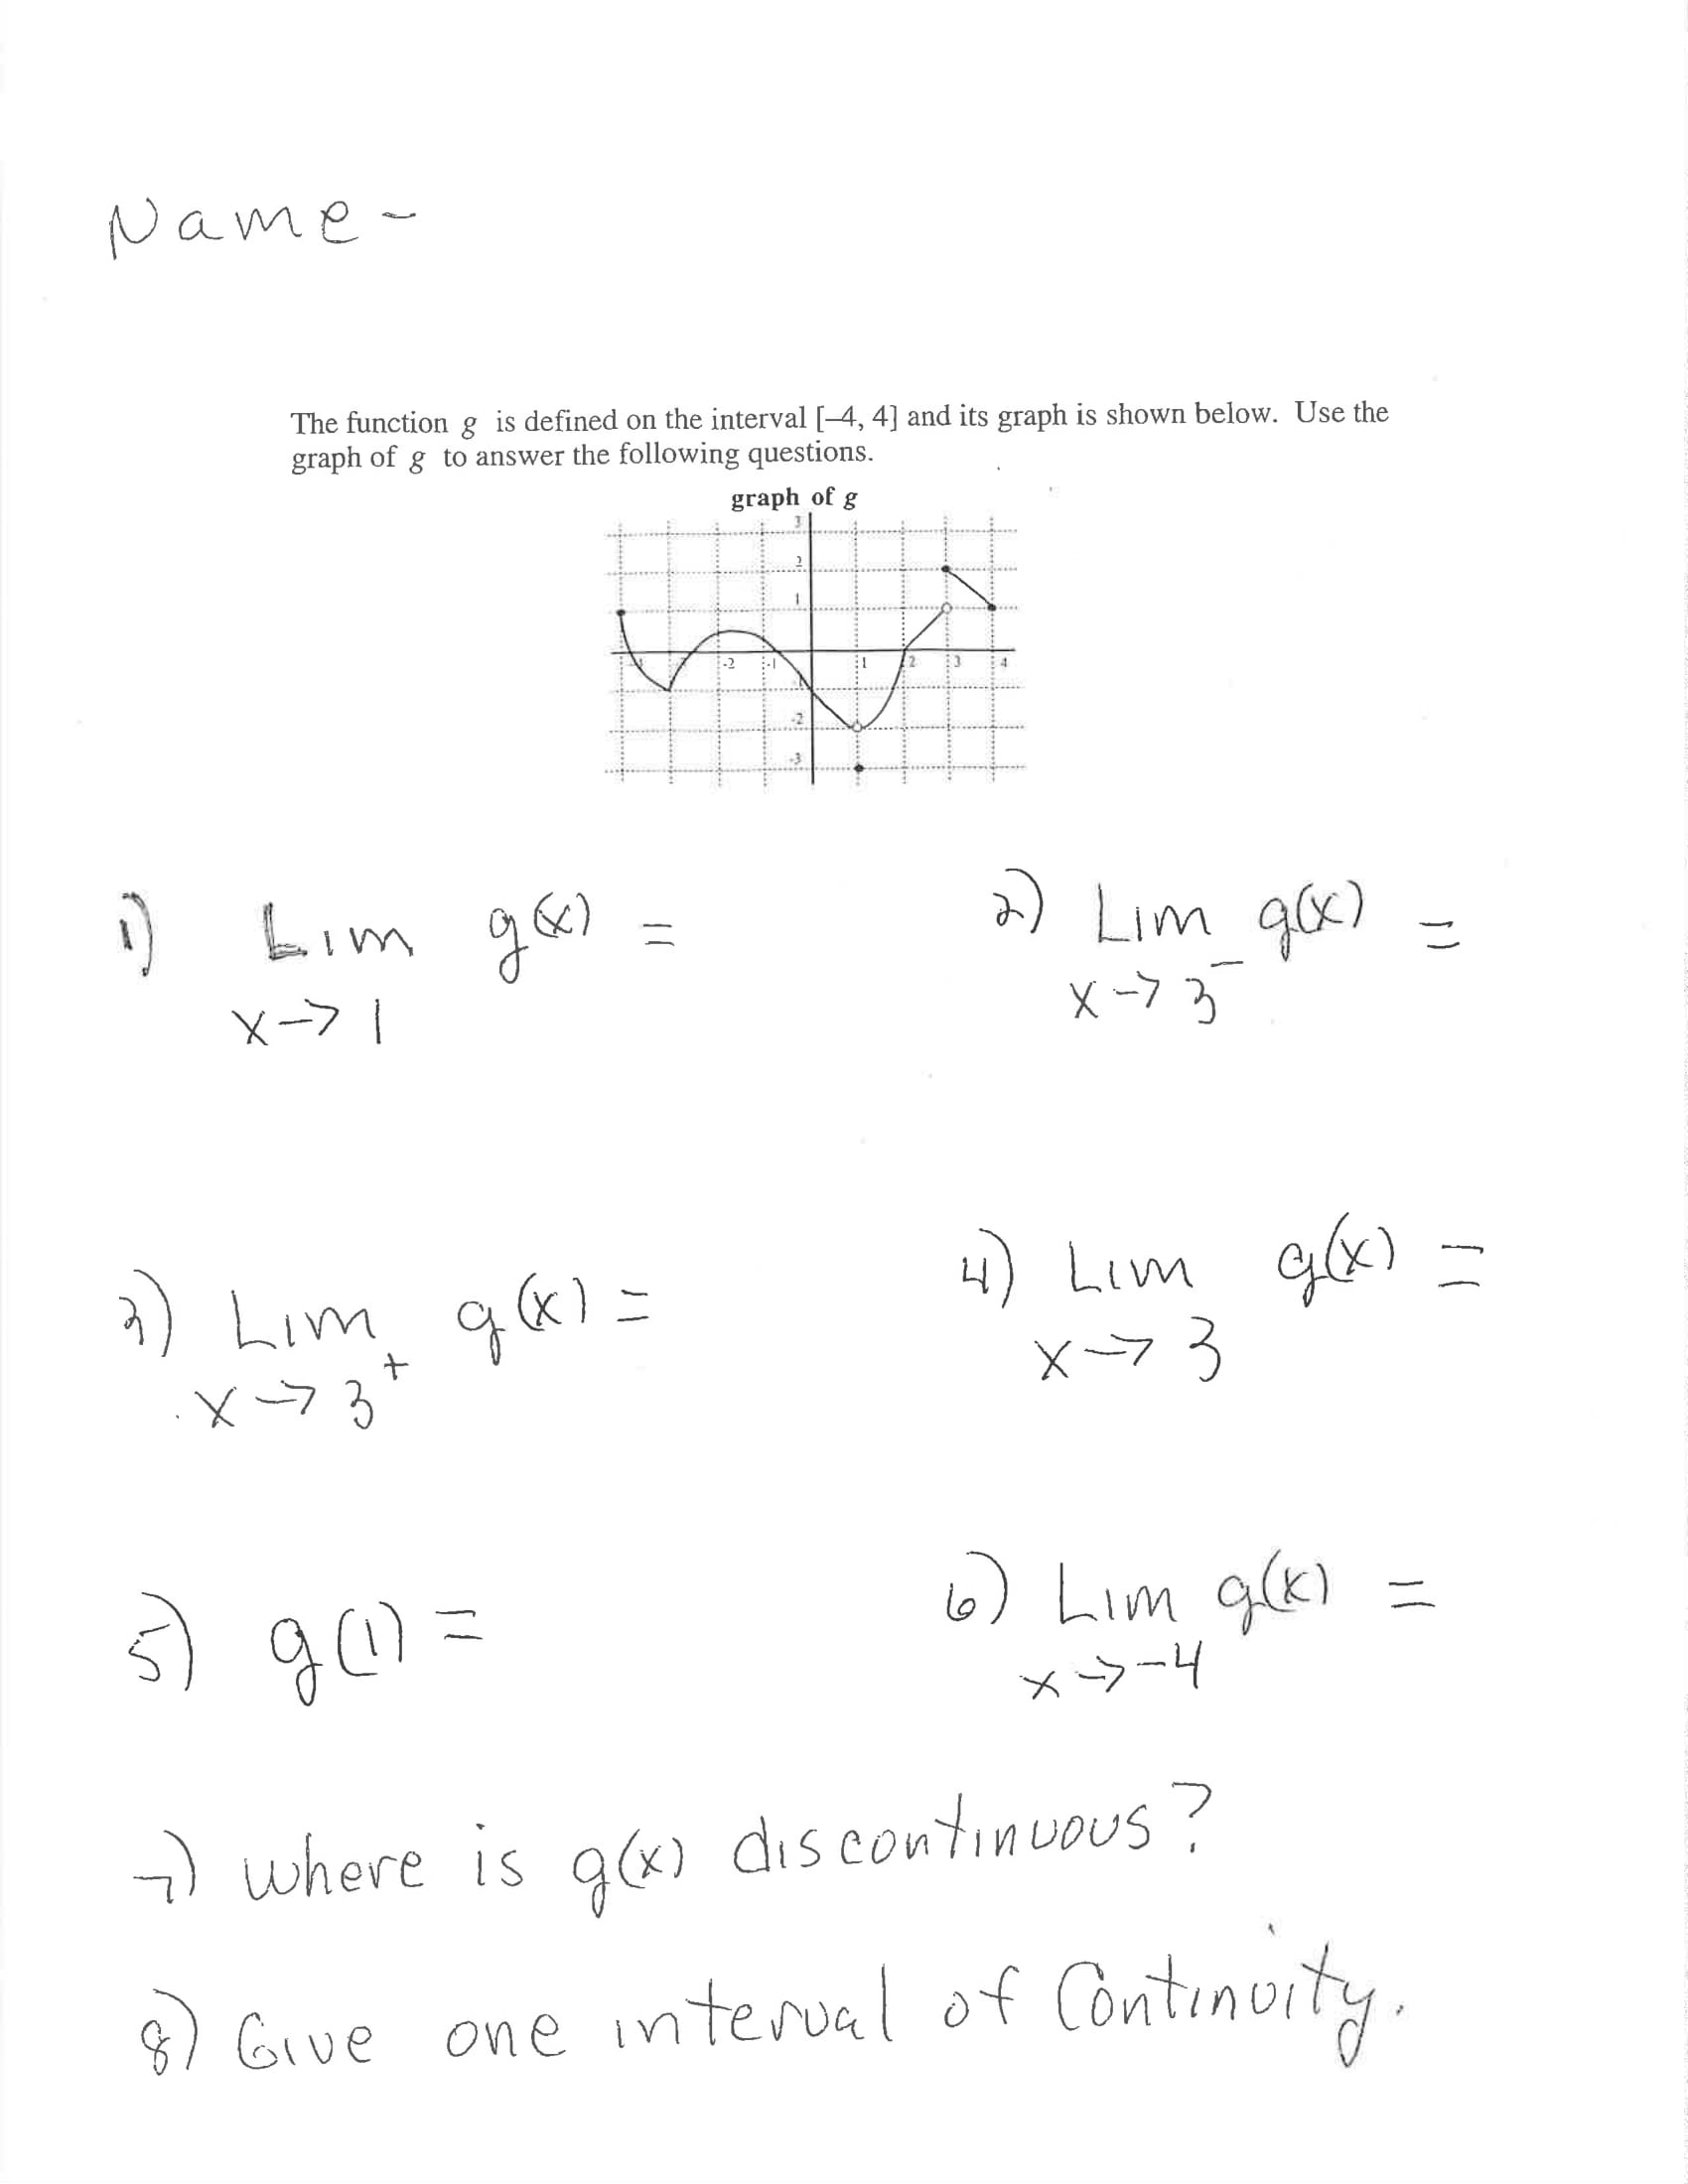 Name-
The function g is defined on the interval [–4, 4] and its graph is shown below. Use the
graph of g to answer the following questions.
graph of g
3
2
1
-2 -1 1 2 3 4
-2
-3
1) Lim g(x) =
x→1
2) Lim g(x) =
x→3⁻
3) Lim g(x) =
x→3⁺
4) Lim g(x) =
x→3
5) g(1) =
6) Lim g(x) =
x→-4
7) Where is g(x) discontinuous?
8) Give one interval of Continuity.